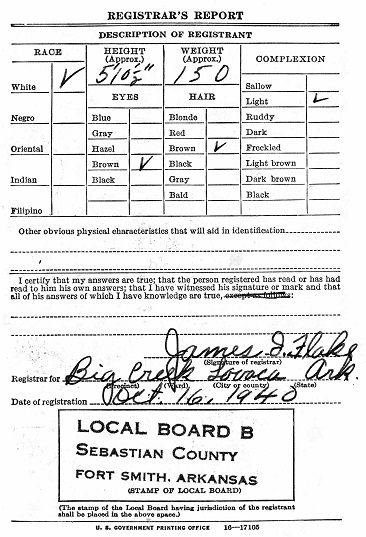 REGISTRAR'S REPORT
DESCRIPTION OF REGISTRANT
RACE HEIGHT (Approx.) WEIGHT (Approx.) COMPLEXION
5'10½" 150
White ✓
EYES HAIR
Sallow
Light ✓
Negro Blue Blonde Ruddy
Gray Red Dark
Oriental Hazel Brown ✓ Freckled
Brown ✓ Black Light brown
Indian Black Gray Dark brown
Bald Black
Filipino
Other obvious physical characteristics that will aid in identification
I certify that my answers are true; that the person registered has read or has had
read to him his own answers; that I have witnessed his signature or mark and that
all of his answers of which I have knowledge are true, except as follows:
James I. Flake
(Signature of registrar)
Registrar for Big Creek Ark.
(Precinct) (Ward) (City or county) (State)
Date of registration Oct. 16, 1940
LOCAL BOARD B
SEBASTIAN COUNTY
FORT SMITH, ARKANSAS
(STAMP OF LOCAL BOARD)
(The stamp of the Local Board having jurisdiction of the registrant
shall be placed in the above space.)
U. S. GOVERNMENT PRINTING OFFICE 16—17105